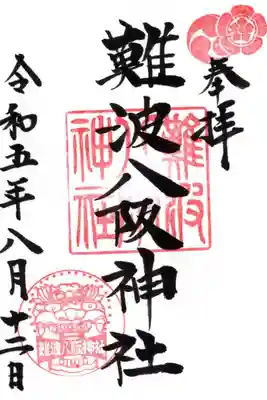 奉拝
難波八阪神社
令和五年八月十二日
難波八阪神社
難波八阪神社